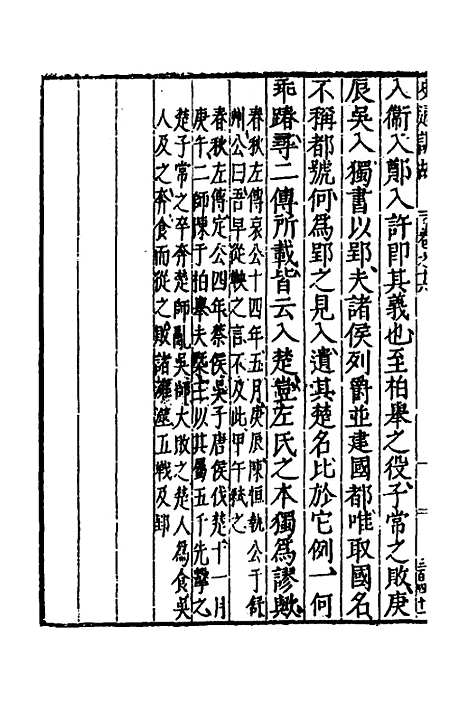 史通訓故 卷之六
入衛入鄭入許即其義也至柏舉之役子常之敗庚
辰吳入獨書以郢夫諸侯列爵並建國都唯取國名
不稱都號何為郢之見入遺其楚名比於它例一何
乖踳尋二傳所載皆云入楚豈左氏之本獨為謬歟
春秋左傳哀公十四年五月庚辰陳恒執公于舒
州公曰吾早從鞅之言不及此甲午弑之
春秋左傳定公四年蔡侯吳子唐侯伐楚十一月
庚午二師陳于柏舉夫槩王以其屬五千先擊之
楚子常之卒奔楚師亂吳師大敗之楚人為食吳
人及之奔食而從之敗諸雍澨五戰及郢